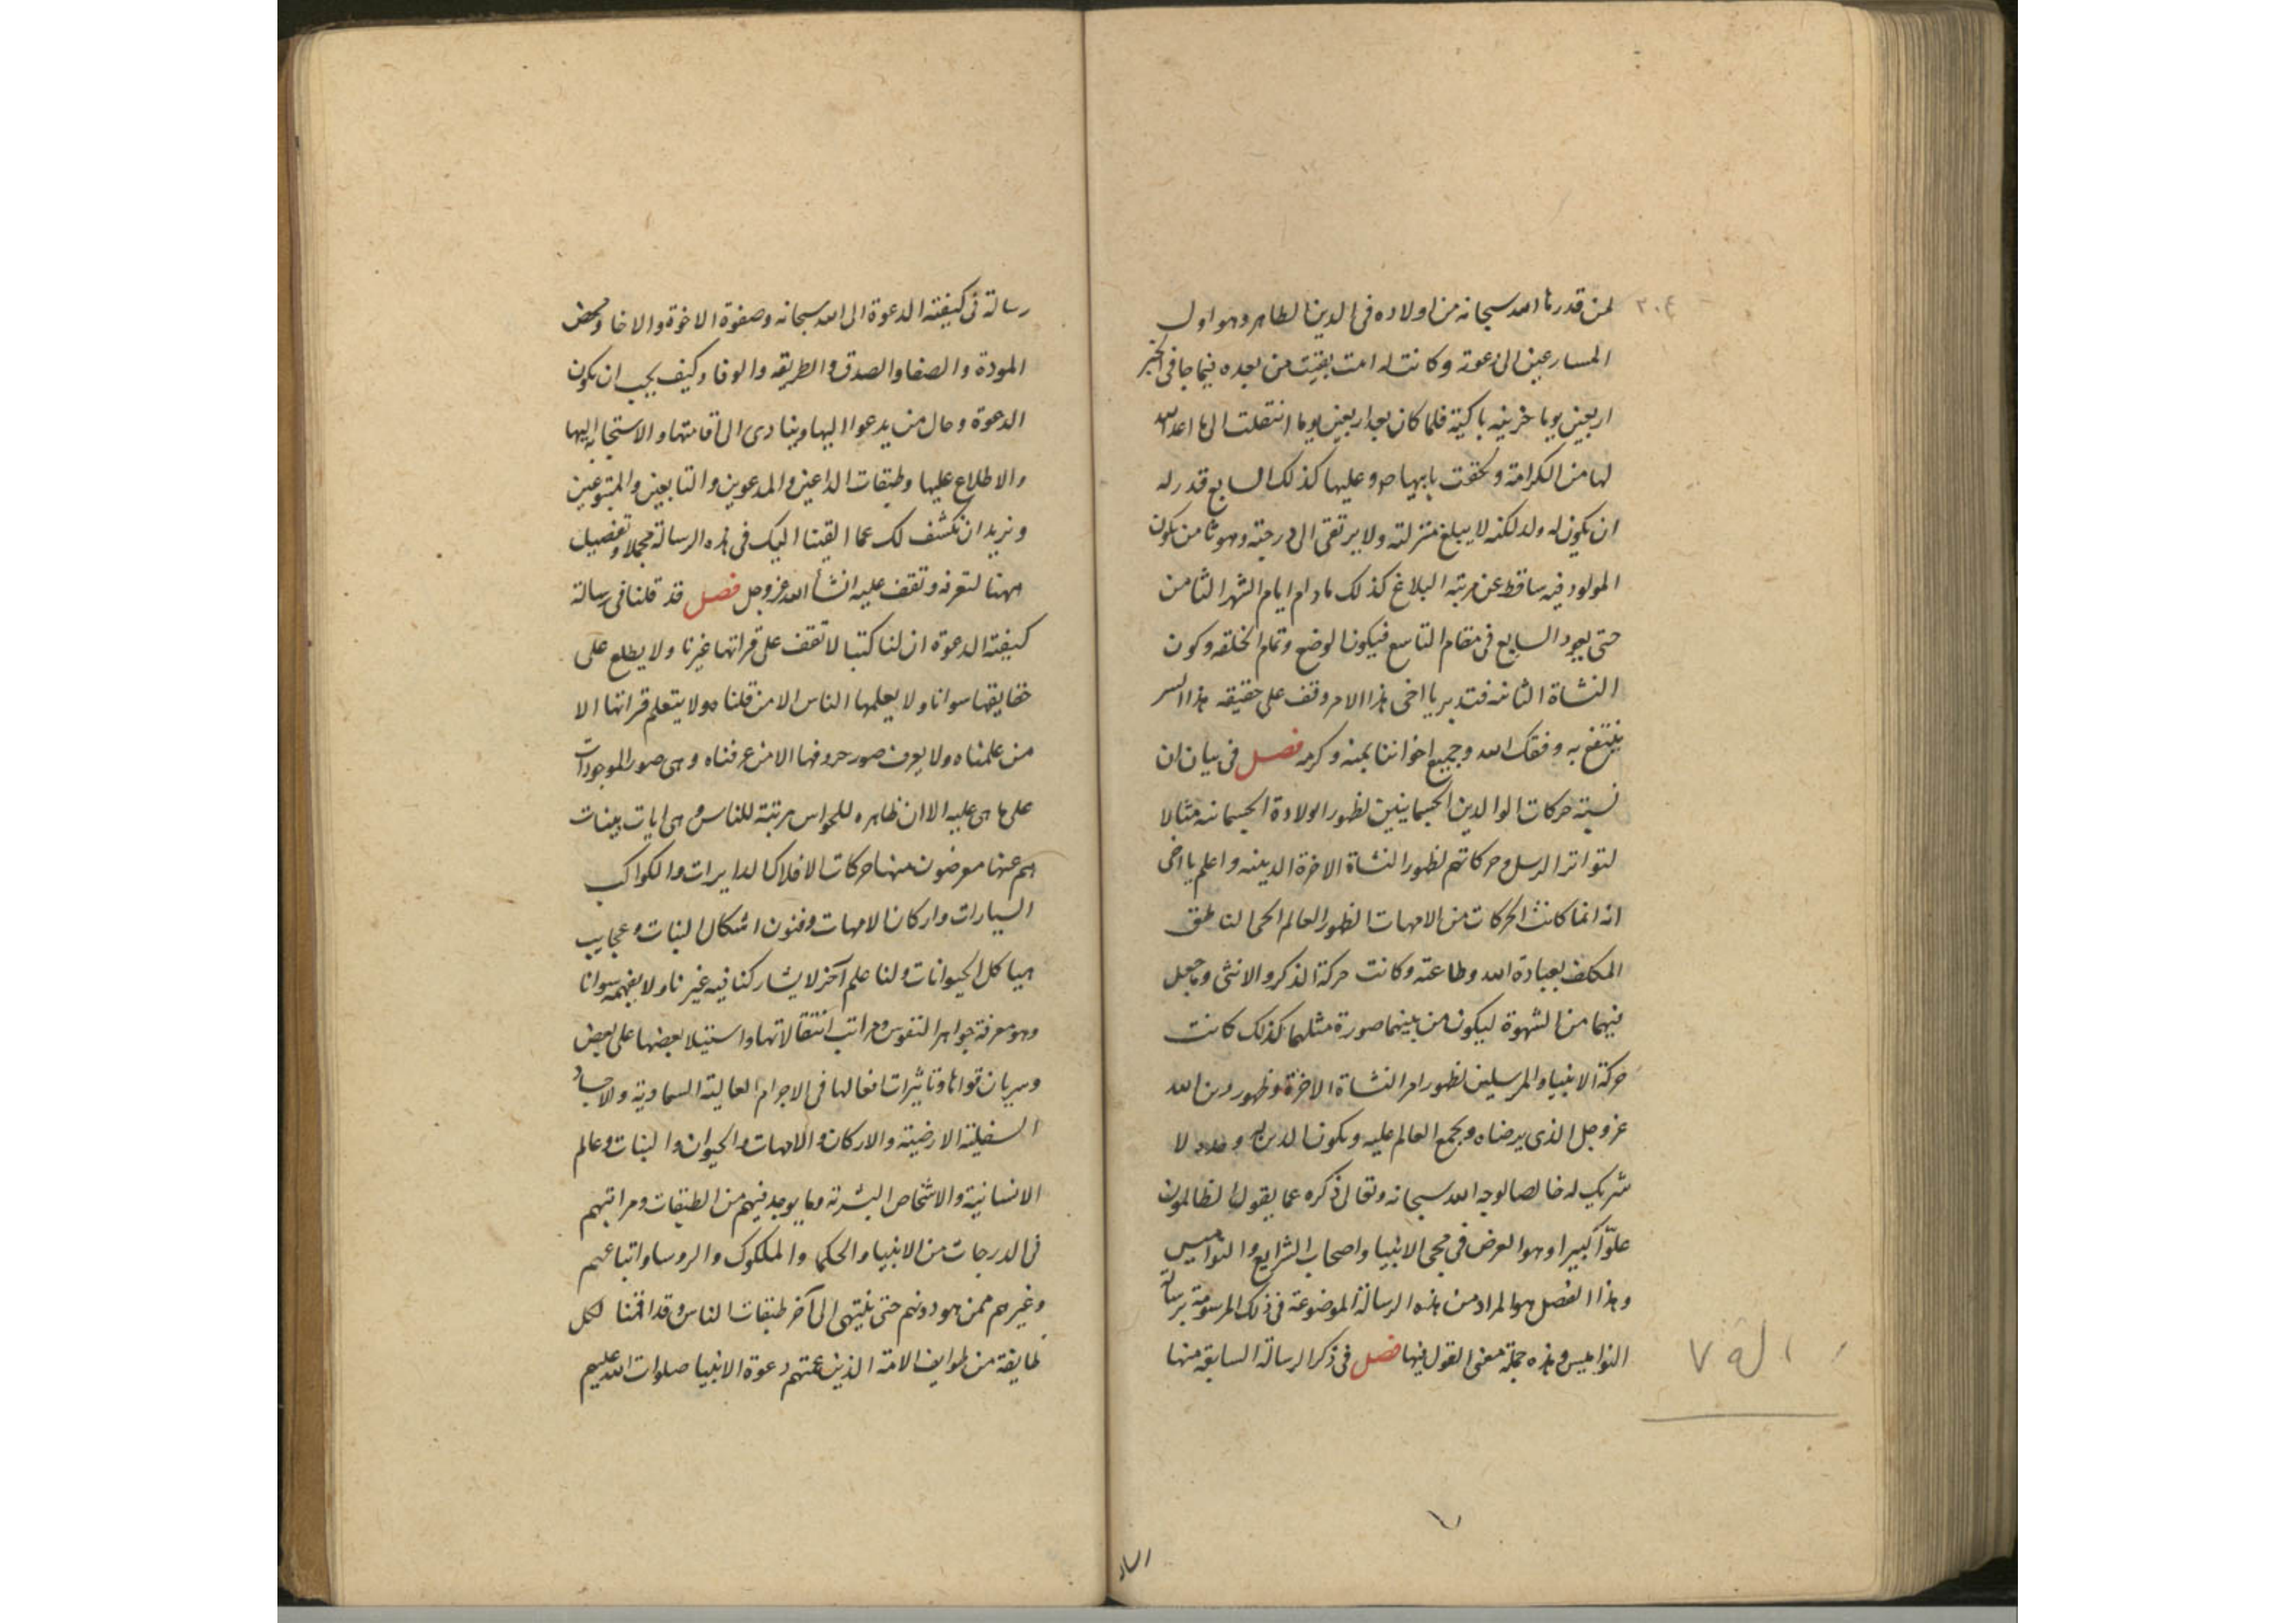 ٢٠٤
لمن قدرها الله سبحانه من اولاده فى الدين الظاهر وهو اول
المسارعين الى دعوته وكانت له امت بقيت من بعده فيما جا فى الخبر
اربعين يوما حزينه باكية فلما كان بعد اربعين يوما انتقلت الى ما اعد الله
لها من الكرامة ولحقت بابيها ص وعليها كذلك السابع قدر له
ان يكون له ولد لكنه لا يبلغ منزلته ولا يرتقى الى درجته وهو ثامن يكون
المولود فيه ساقط عن مرتبة البلاغ كذلك مادام ايام الشهر الثامن
حتى يعود السابع فى مقام التاسع فيكون الوضع وتمام الخلقه وكون
النشاة الثانيه فتدبر يا اخى هذا الامر وقف على حقيقه هذا السر
ينتفع به وفقك الله وجميع اخواننا بمنه وكرمه فصل فى بيان ان
نسبة حركات الوالدين الجسمانيين لظهور الولادة الجسمانيه مثالا
لتواتر الرسل وحركاتهم لظهور النشاة الاخرة الدينيه واعلم يا اخى
انه انما كانت الحركات من الامهات لظهور العالم الحى الناطق
المكلف بعبادة الله وطاعته وكانت حركة الذكر والانثى وما جعل
فيهما من الشهوة ليكون من بينهما صورة مثلهما كذلك كانت
حركة الانبيا والمرسلين لظهور امر النشاة الاخرة وظهور دين الله
عز وجل الذى يرضاه ويجمع العالم عليه ويكون الدين لله وحده لا
شريك له خالصا لوجه الله سبحانه وتعالى ذكره عما يقول الظالمون
علوّا كبيرا وهو الغرض فى مجى الانبيا واصحاب الشرايع والنواميس
وهذا الفصل هو المراد من هذه الرسالة الموضوعة فى ذلك المرسومة برسالة
النواميس وهذه جملة معنى القول فيها فصل فى ذكر الرسالة السابقه منها
رسالة فى كيفية الدعوة الى الله سبحانه وصفوة الاخوة والاخا ومحض
المودة والصفا والصدق والطريقه والوفا وكيف يجب ان يكون
الدعوة وحال من يدعو اليها وينادى الى اقامتها والاستجابه اليها
والاطلاع عليها وطبقات الداعين والمدعوين والتابعين والمتبوعين
ونريد ان نكشف لك عما القينا اليك فى هذه الرسالة مجملا وتفصيل
ههنا لتعرفه وتقف عليه انشأ الله عز وجل فصل قد قلنا فى رسالة
كيفية الدعوة ان لنا كتبا لا تقف على قراتها غيرنا ولا يطلع على
حقايقها سوانا ولا يعلمها الناس الا من قلناه ولا يتعلم قراتها الا
من علمناه ولا يعرف صور حروفها الا من عرفناه وهى صور الموجودات
على ما هى عليه الا ان ظاهره للحواس مرتبة للناس وهى ايات بينات
هم عنها معرضون منها حركات الافلاك الدايرات والكواكب
السيارات واركان الامهات وفنون اشكال النبات وعجايب
هياكل الحيوانات ولنا علم آخر لا يشاركنا فيه غيرنا ولا يفهمه سوانا
وهو معرفة جواهر النفوس ومراتب انتقالاتها واستيلا بعضها على بعض
وسريان قواها وتاثيرات افعالها فى الاجرام العالية السماوية والاجساد
السفلية الارضية والاركان والامهات والحيوان والنبات وعالم
الانسانية والاشخاص البشرية وما يوجد فيهم من الطبقات ومراتبهم
فى الدرجات من الانبيا والحكما والملوك والروسا واتباعهم
وغيرهم ممن هو دونهم حتى ينتهى الى آخر طبقات الناس وقد اقمنا لكل
طايفة من طوايف الامة الذين عمتهم دعوة الانبيا صلوات الله عليهم